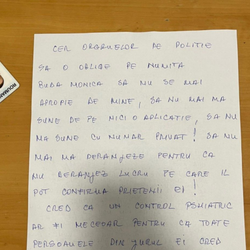 CER ORGANELOR DE POLITIE
SA O OBLIGE PE NUMITA
BUDA MONICA SA NU SE MAI
APROPIE DE MINE, SA NU MAI MA
SUNE DE PE NICI O APLICATIE, SA NU
MA SUNE CU NUMAR PRIVAT! SA NU
MAI MA DERANJEZE PENTRU CA
NU DERANJEZ LUCRU PE CARE IL
POT CONFIRMA PRIETENII EI!
CRED CA UN CONTROL PSIHIATRIC
AR FI NECESAR PENTRU CA TOATE
PERSOANELE DIN JURUL EI CRED